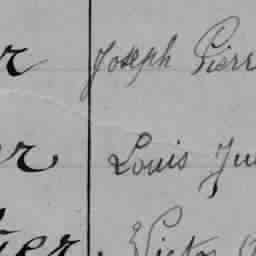 r Joseph Pierr
er Louis Ju
ier Victor